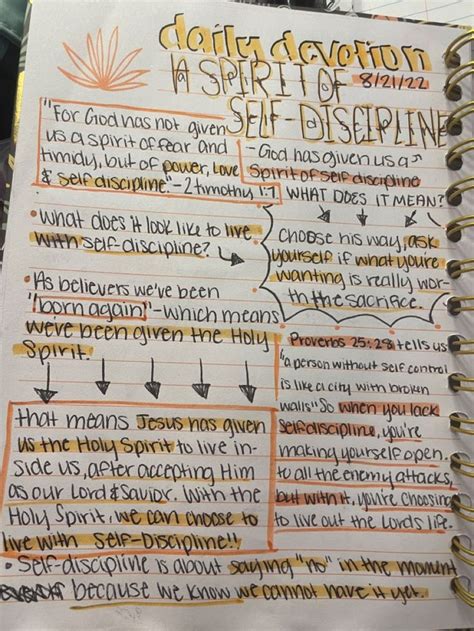 daily devotion
A SPIRIT OF
8/21/22
SELF-DISCIPLINE
"For God has not given
us a spirit of fear and
timidy, but of power, love
& self discipline."-2 timothy 1:7
- God has given us a
Spirit of self discipline
WHAT DOES IT MEAN?
Choose his way, ask
yourself if what you're
wanting is really wor-
th the sacrifice.
• What does it look like to live
with self-discipline?
• As believers we've been
"born again"-which means
we've been given the Holy
Spirit.
that means Jesus has given
us the Holy Spirit to live in-
side us, after accepting Him
as our Lord & Savior. With the
Holy Spirit, we can choose to
live with Self-Discipline!!
• Proverbs 25:28 tells us
"a person without self control
is like a city with broken
walls" So when you lack
selfdiscipline, you're
making yourself open
to all the enemy attacks,
but with it, you're choosing
to live out the Lords life.
• Self-discipline is about saying "no" in the moment
because we know we cannot have it yet.